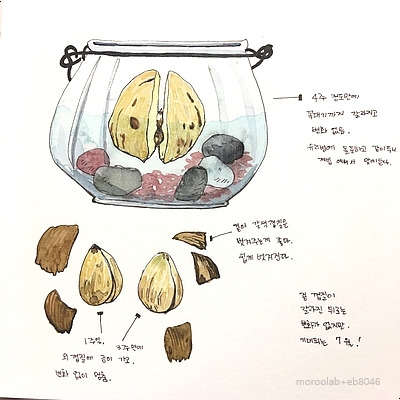 4주 정도만에
꼭대기까지 갈라지고
변화 없음.
유리병에 돌을하고 같이두니
겉이 갈색껍질은
벗겨주는게 좋다.
쉽게 벗겨진다.
1주만.
3주만에
외껍질에 금이 가고.
변화 없이 멈춤.
겉 껍질이
갈라진 뒤로는
변화가 없지만.
기대되는 7월!
moroolab+eb8046